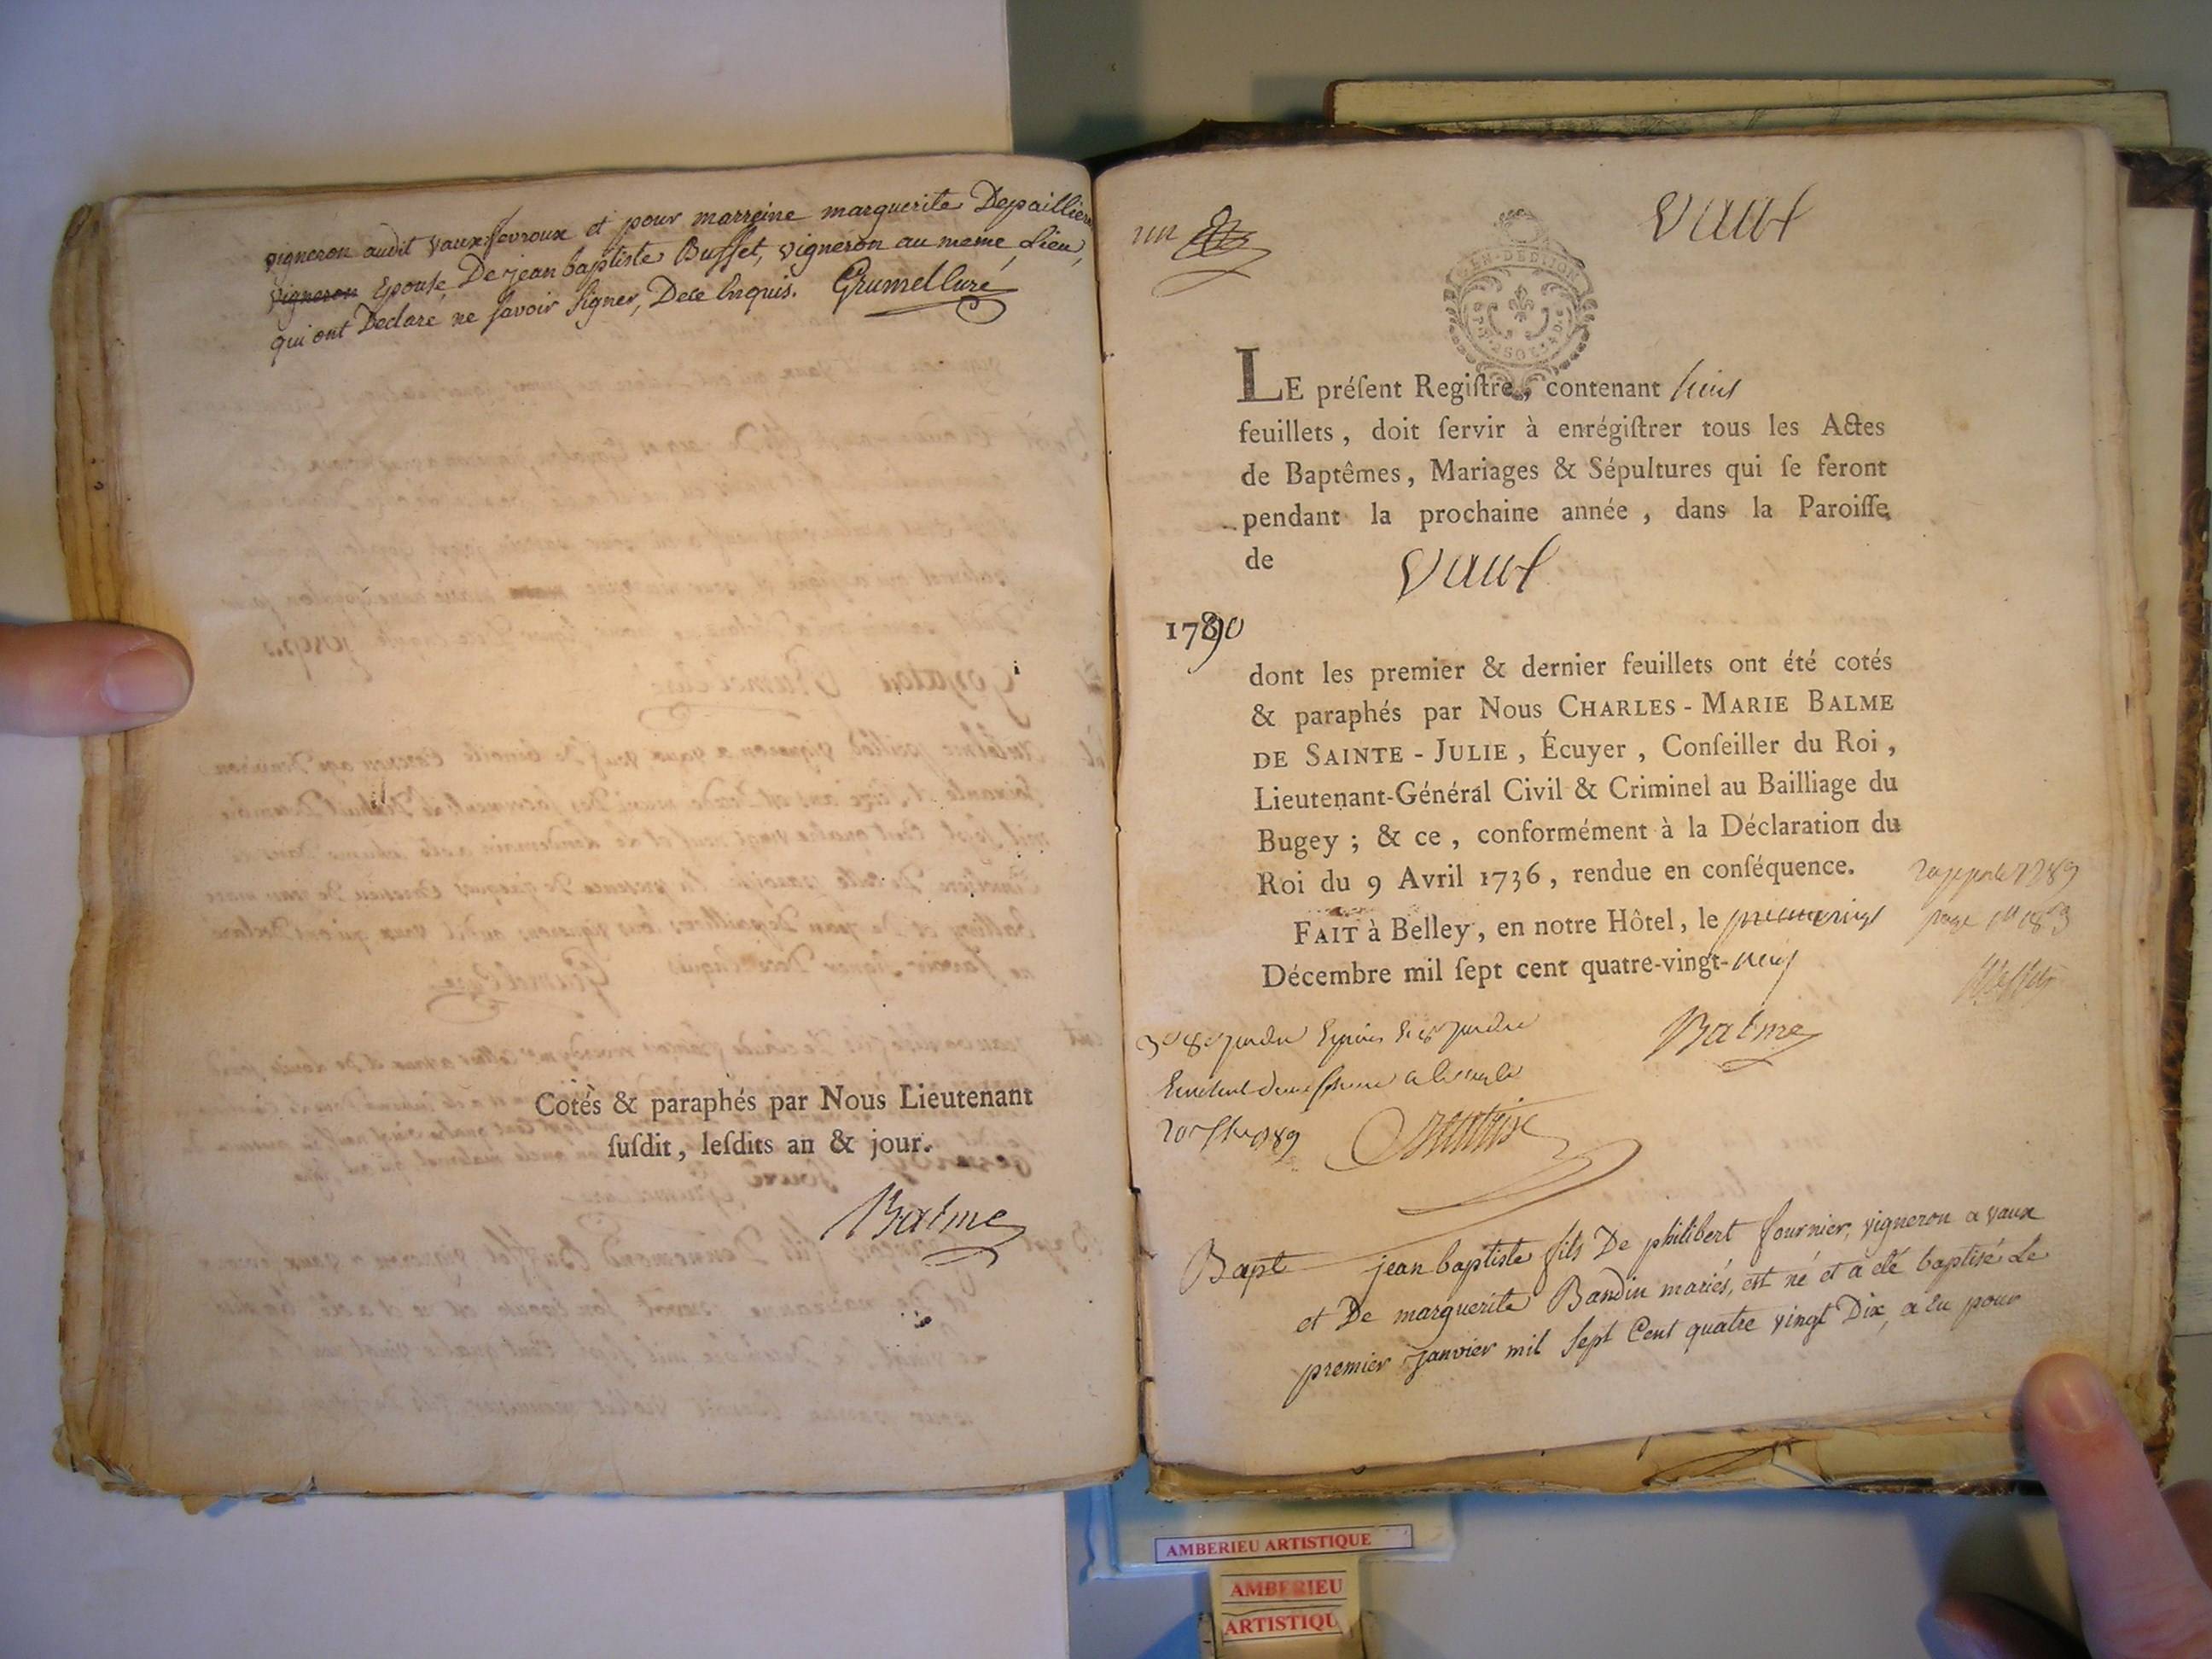 vigneron audit vaux fevroux et pour marreine marguerite Depaillier
vigneron Epouse De jean baptiste Buffet, vigneron au meme Lieu,
qui ont Declaré ne savoir signer, Dece Enquis. Grumel Curé
Cotés & paraphés par Nous Lieutenant
ſuſdit, leſdits an & jour.
Balme
un
Vaux
LE préſent Regiſtre, contenant
feuillets, doit ſervir à enrégiſtrer tous les Actes
de Baptêmes, Mariages & Sépultures qui ſe feront
pendant la prochaine année, dans la Paroiſſe
de Vaux
1790
dont les premier & dernier feuillets ont été cotés
& paraphés par Nous CHARLES-MARIE BALME
DE SAINTE-JULIE, Écuyer, Conſeiller du Roi,
Lieutenant-Général Civil & Criminel au Bailliage du
Bugey; & ce, conformément à la Déclaration du
Roi du 9 Avril 1736, rendue en conſéquence.
FAIT à Belley, en notre Hôtel, le
Décembre mil ſept cent quatre-vingt-neuf
Balme
Bapt jean baptiste fils De philibert fournier, vigneron a vaux
et De marguerite Bandin mariés, est né et a eté baptisé Le
premier janvier mil sept Cent quatre vingt Dix, a Eu pour
AMBERIEU ARTISTIQUE
AMBERIEU
ARTISTIQU